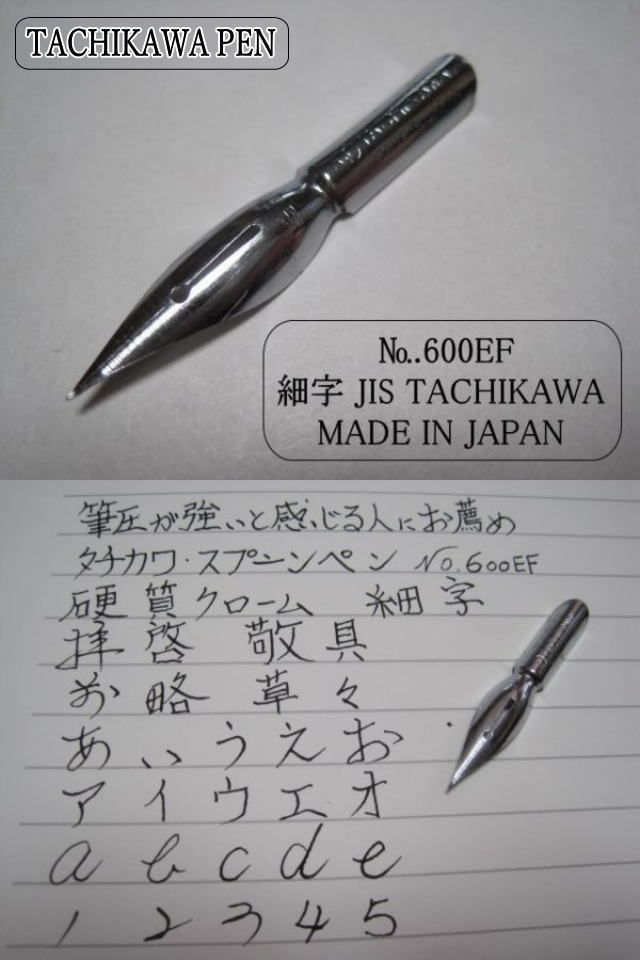 TACHIKAWA PEN
No..600EF
細字 JIS TACHIKAWA
MADE IN JAPAN
筆圧が強いと感じる人にお薦め
タチカワ・スプーンペン No.600EF
硬質クローム 細字
拝啓 敬具
前略 草々
あいうえお
アイウエオ
a b c d e
1 2 3 4 5